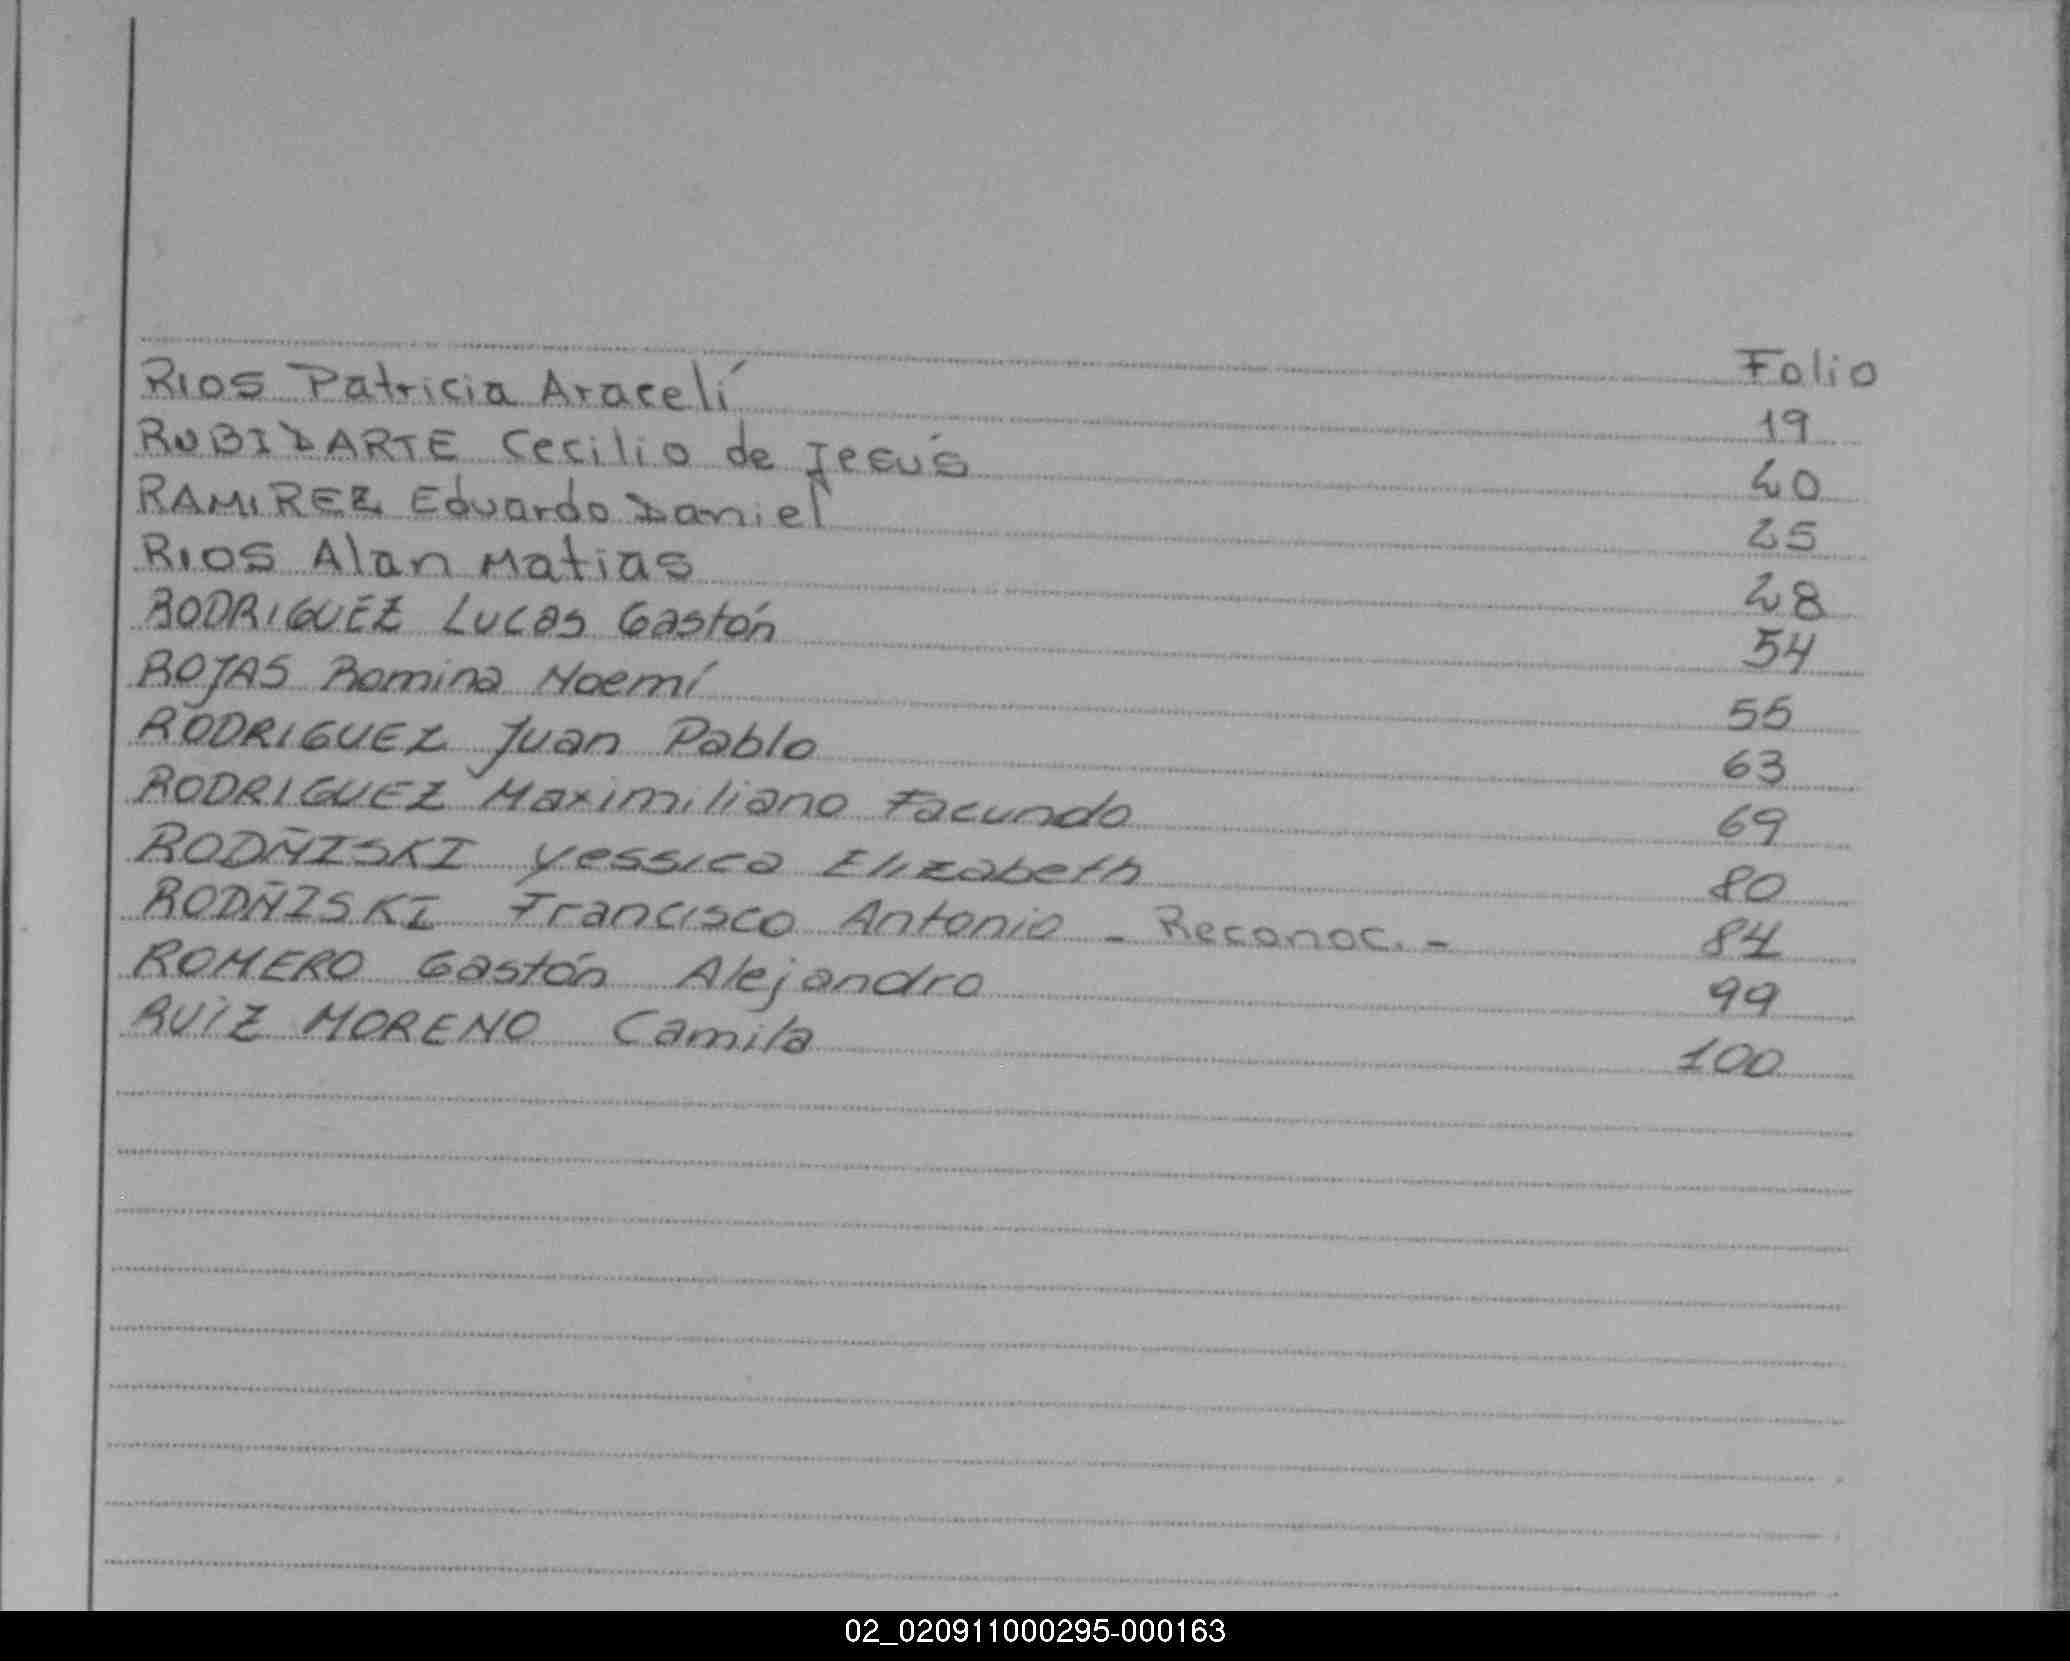 Folio
RIOS Patricia Aracelí 19
RUBIDARTE Cecilio de Jesús 20
RAMIREZ Eduardo Daniel 25
RIOS Alan Matias 28
RODRIGUEZ Lucas Gastón 54
ROJAS Romina Noemí 55
RODRIGUEZ Juan Pablo 63
RODRIGUEZ Maximiliano Facundo 69
RODÑISKI Yessica Elizabeth 80
RODÑISKI Francisco Antonio - Reconoc. - 84
ROMERO Gastón Alejandro 99
RUIZ MORENO Camila 100
02_020911000295-000163